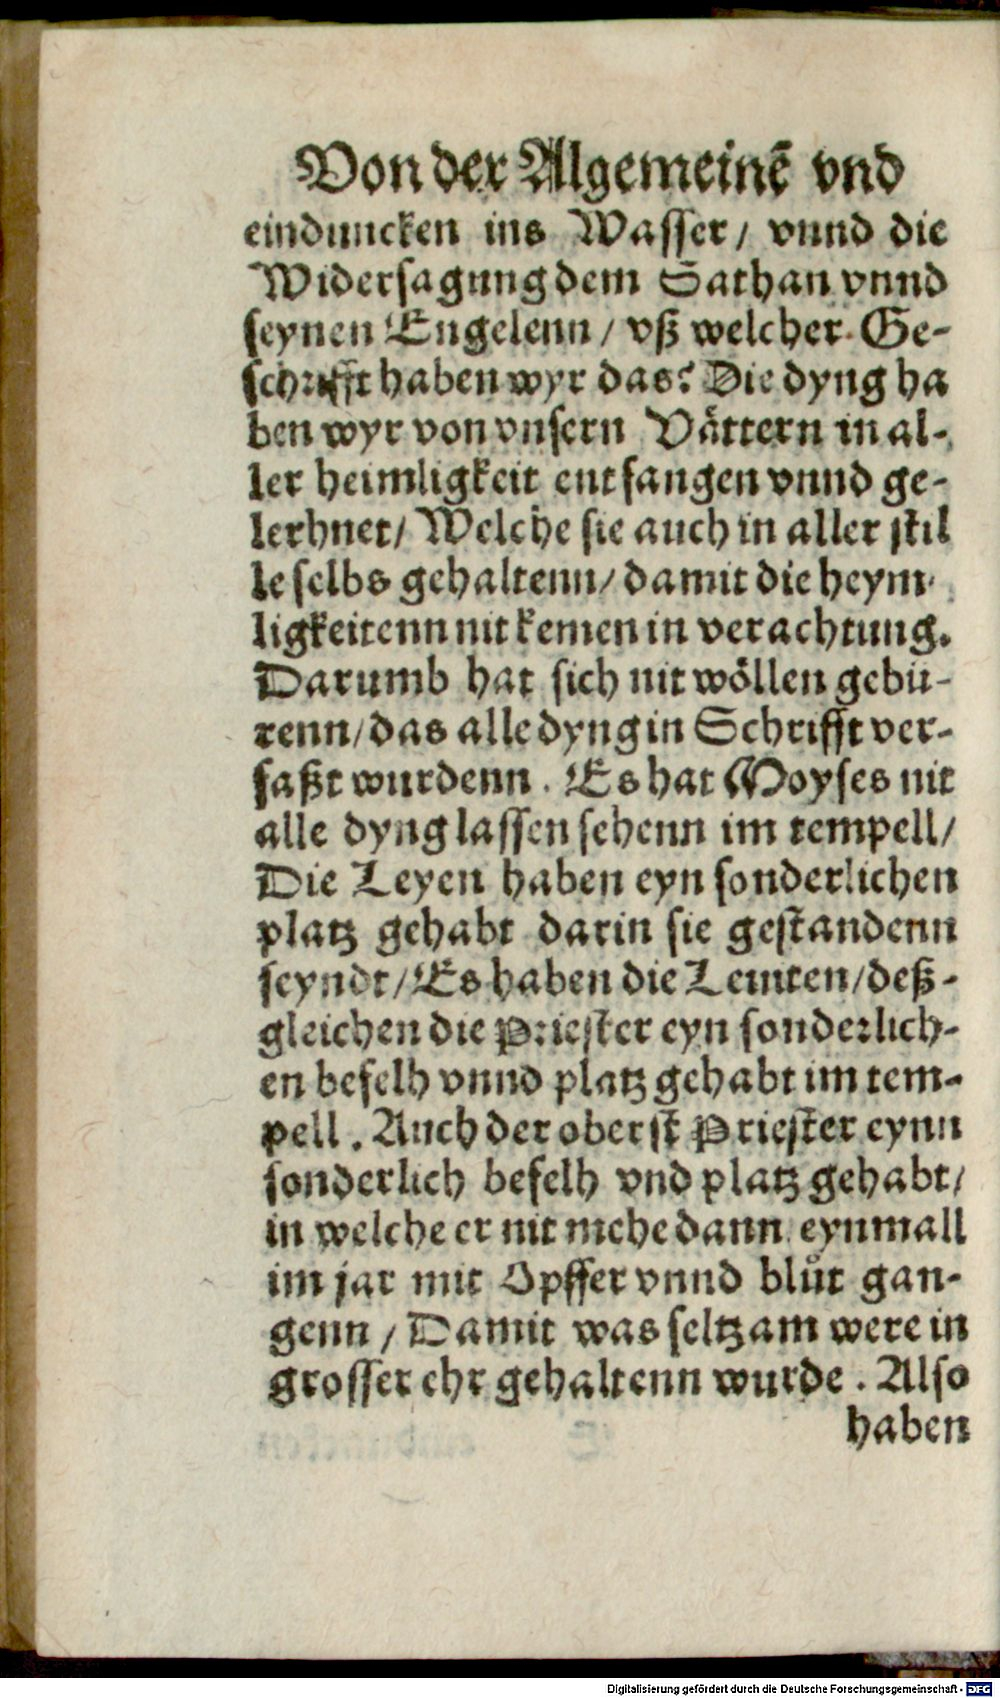 Von der Algemeinē vnd
einduncken ins Wasser / vnnd die
Widersagung dem Sathan vnnd
seynen Engelenn / vß welcher Ge-
schrifft haben wyr das? Die dyng ha
ben wyr von vnsern Vättern in al-
ler heimligkeit entfangen vnnd ge-
lerhnet / Welche sie auch in aller stil
le selbs gehaltenn / damit die heym-
ligkeitenn nit kemen in verachtung.
Darumb hat sich nit wöllen gebü-
renn / das alle dyng in Schrifft ver-
faßt wurdenn . Es hat Moyses nit
alle dyng lassen sehenn im tempell /
Die Leyen haben eyn sonderlichen
platz gehabt darin sie gestandenn
seyndt / Es haben die Leuiten / deß-
gleichen die Priester eyn sonderlich-
en befelh vnnd platz gehabt im tem-
pell . Auch der oberst Priester eynn
sonderlich befelh vnd platz gehabt /
in welche er nit mehe dann eynmall
im jar mit Opffer vnnd blůt gan-
genn / Damit was seltzam were in
grosser ehr gehaltenn wurde . Also
haben
Digitalisierung gefördert durch die Deutsche Forschungsgemeinschaft - DFG